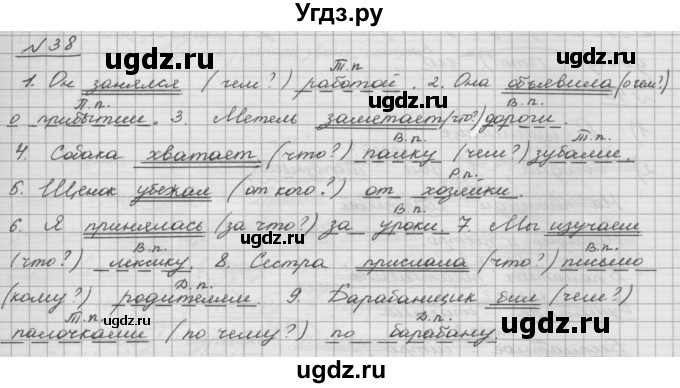 Угдз.ру
ugdz.ru ugdz.ru ugdz.ru
№38
Т.п.
1. Он занялся (чем?) работой. 2. Она объявила (о чём?)
П.п. В.п.
о прибытии. 3. Метель заметает (что?) дороги.
В.п. Т.п.
4. Собака хватает (что?) палку (чем?) зубами.
Р.п.
5. Щенок убежал (от кого?) от хозяйки.
В.п.
6. Я принялась (за что?) за уроки. 7. Мы изучаем
В.п. В.п.
(что?) лексику. 8. Сестра прислала (что?) письмо
Д.п.
(кому?) родителям. 9. Барабанщик бил (чем?)
Т.п. Д.п.
палочками (по чему?) по барабану.
ugdz.ru